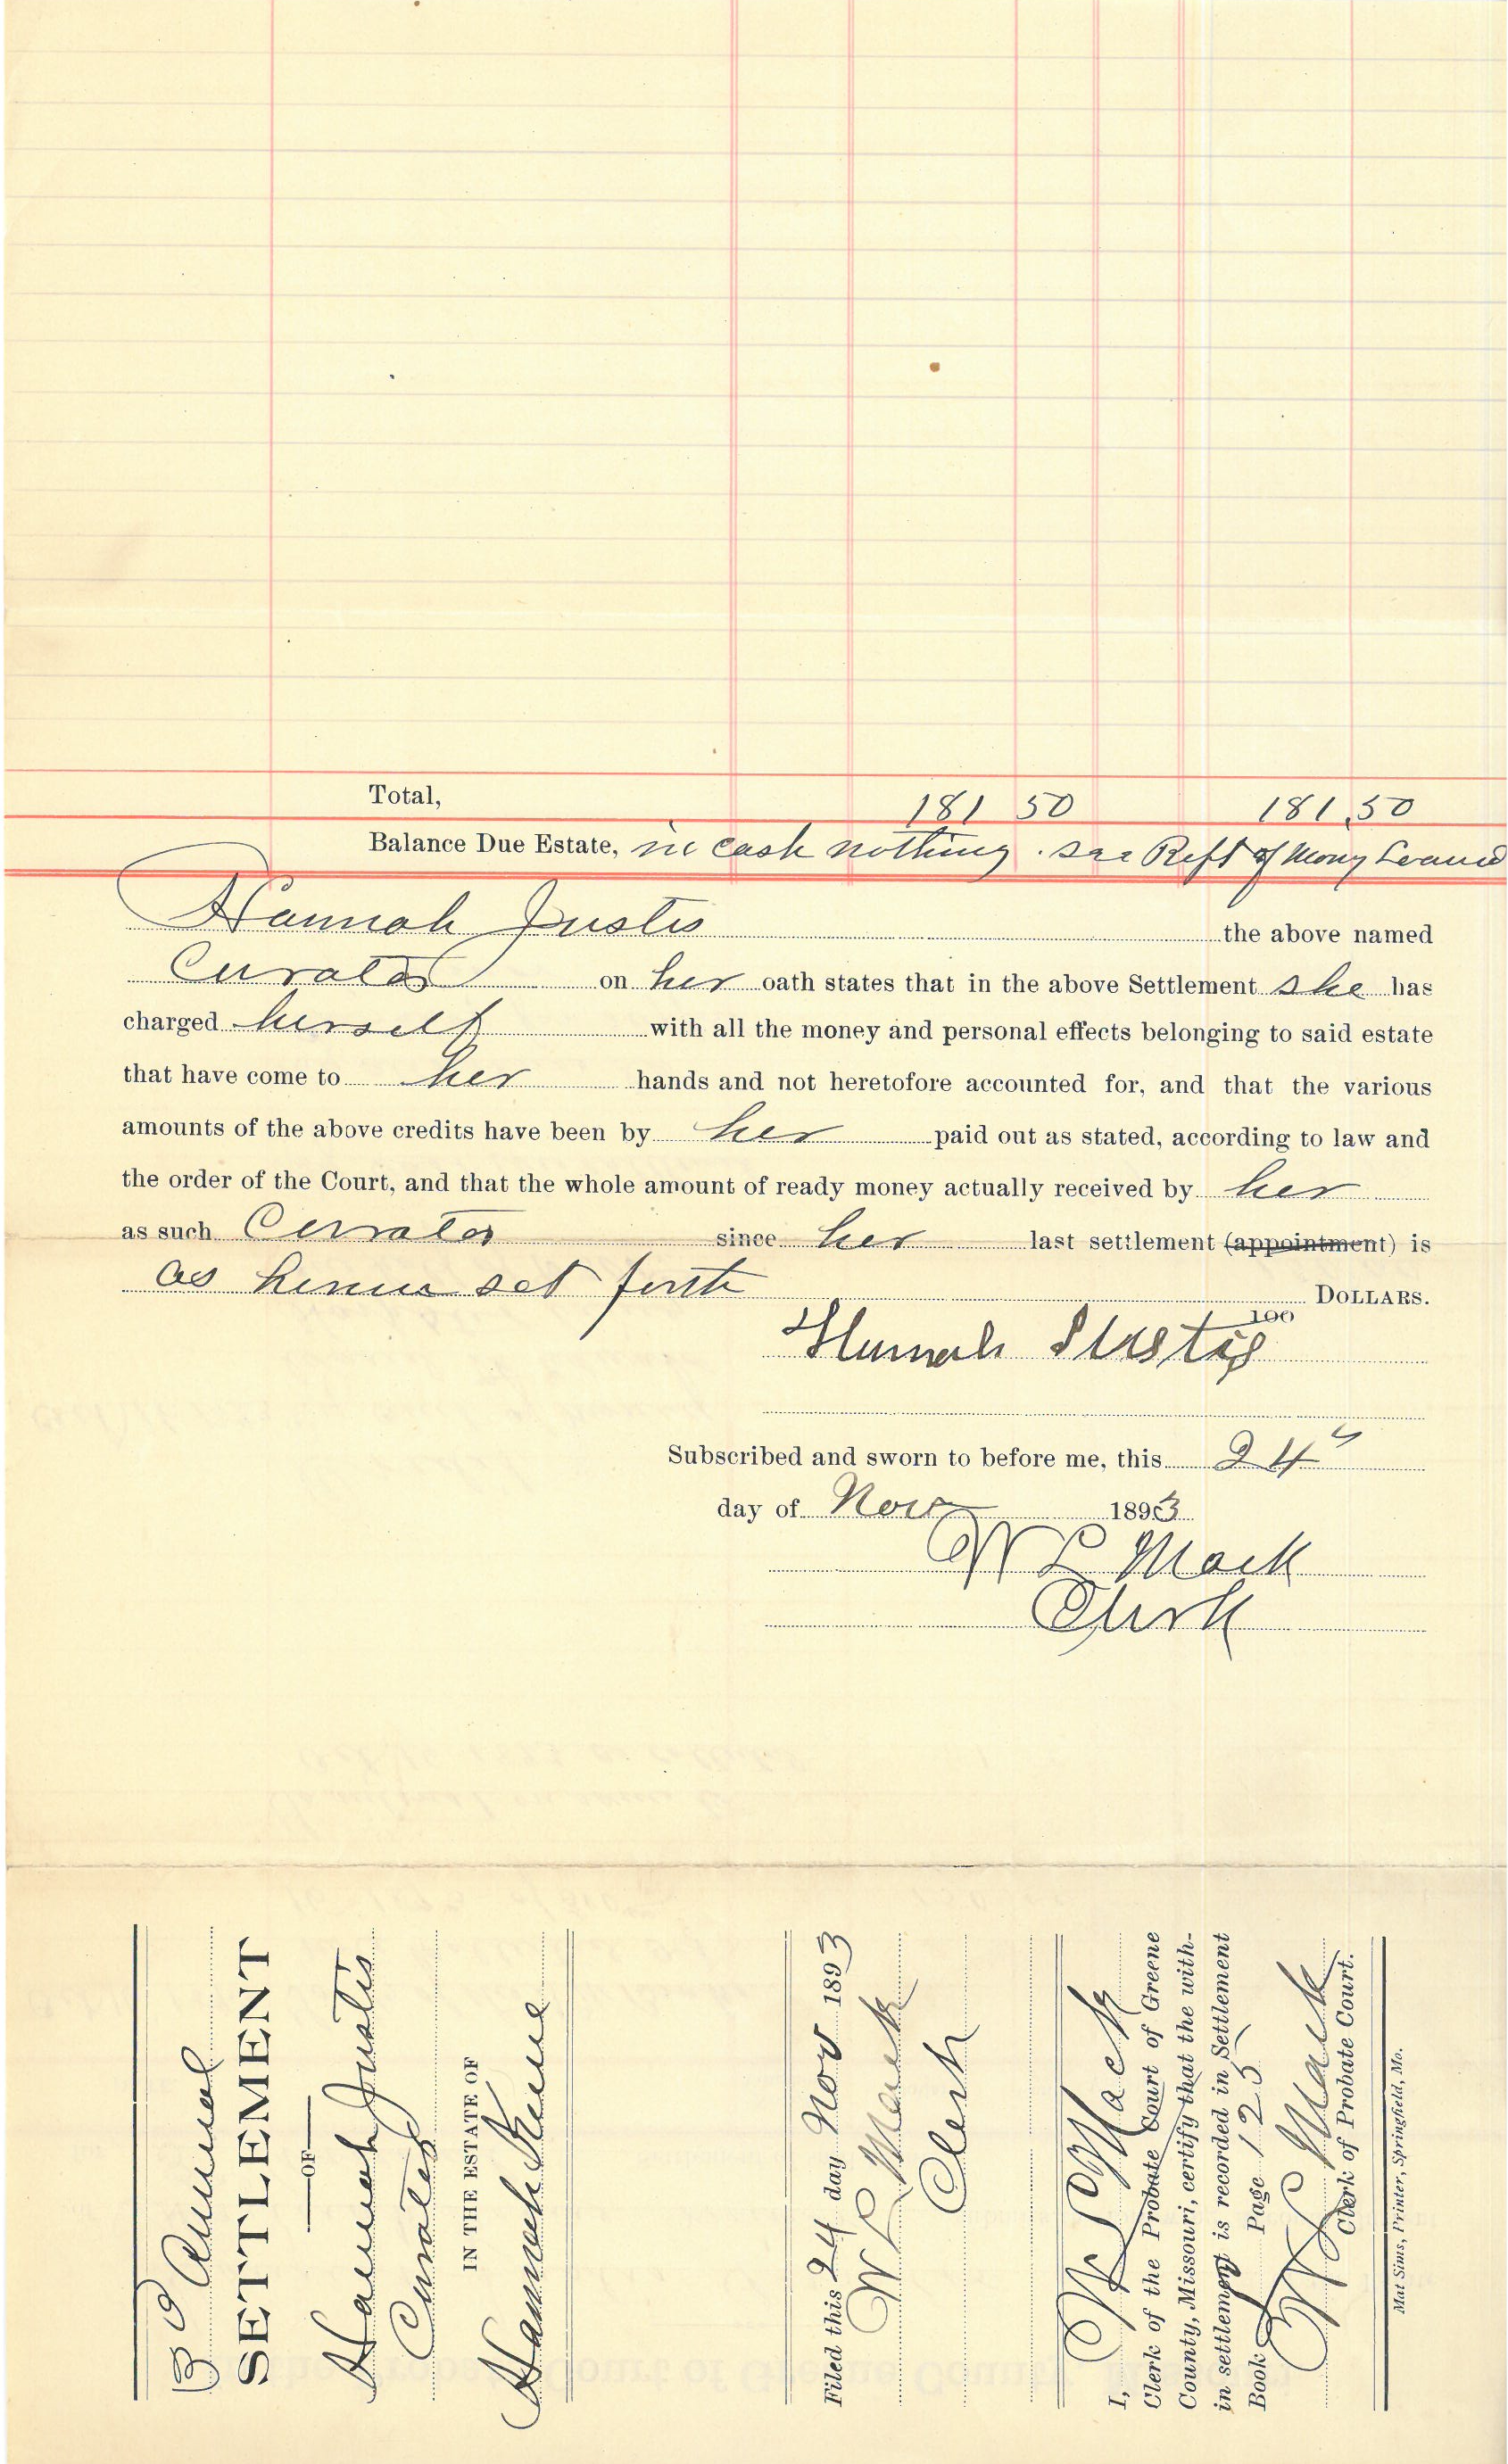 Total, 181 50 181.50
Balance Due Estate, in cash nothing. see Rept of Mony Loaned
Hannah Justis the above named
Curator on her oath states that in the above Settlement she has
charged herself with all the money and personal effects belonging to said estate
that have come to her hands and not heretofore accounted for, and that the various
amounts of the above credits have been by her paid out as stated, according to law and
the order of the Court, and that the whole amount of ready money actually received by her
as such Curator since her last settlement (appointment) is
as herein set forth DOLLARS.
100
Hannah Justis
Subscribed and sworn to before me, this 24"
day of Nov 1893
W L Mack
Clerk
3d Annual
SETTLEMENT
OF
Hannah Justis
Curator
IN THE ESTATE OF
Hannah
Filed this 24 day Nov 1893
W L Mack
Clerk
I, W L Mack
Clerk of the Probate Court of Greene
County, Missouri, certify that the with-
in settlement is recorded in Settlement
Book Page 125
W L Mack
Clerk of Probate Court.
Mat Sims, Printer, Springfield, Mo.